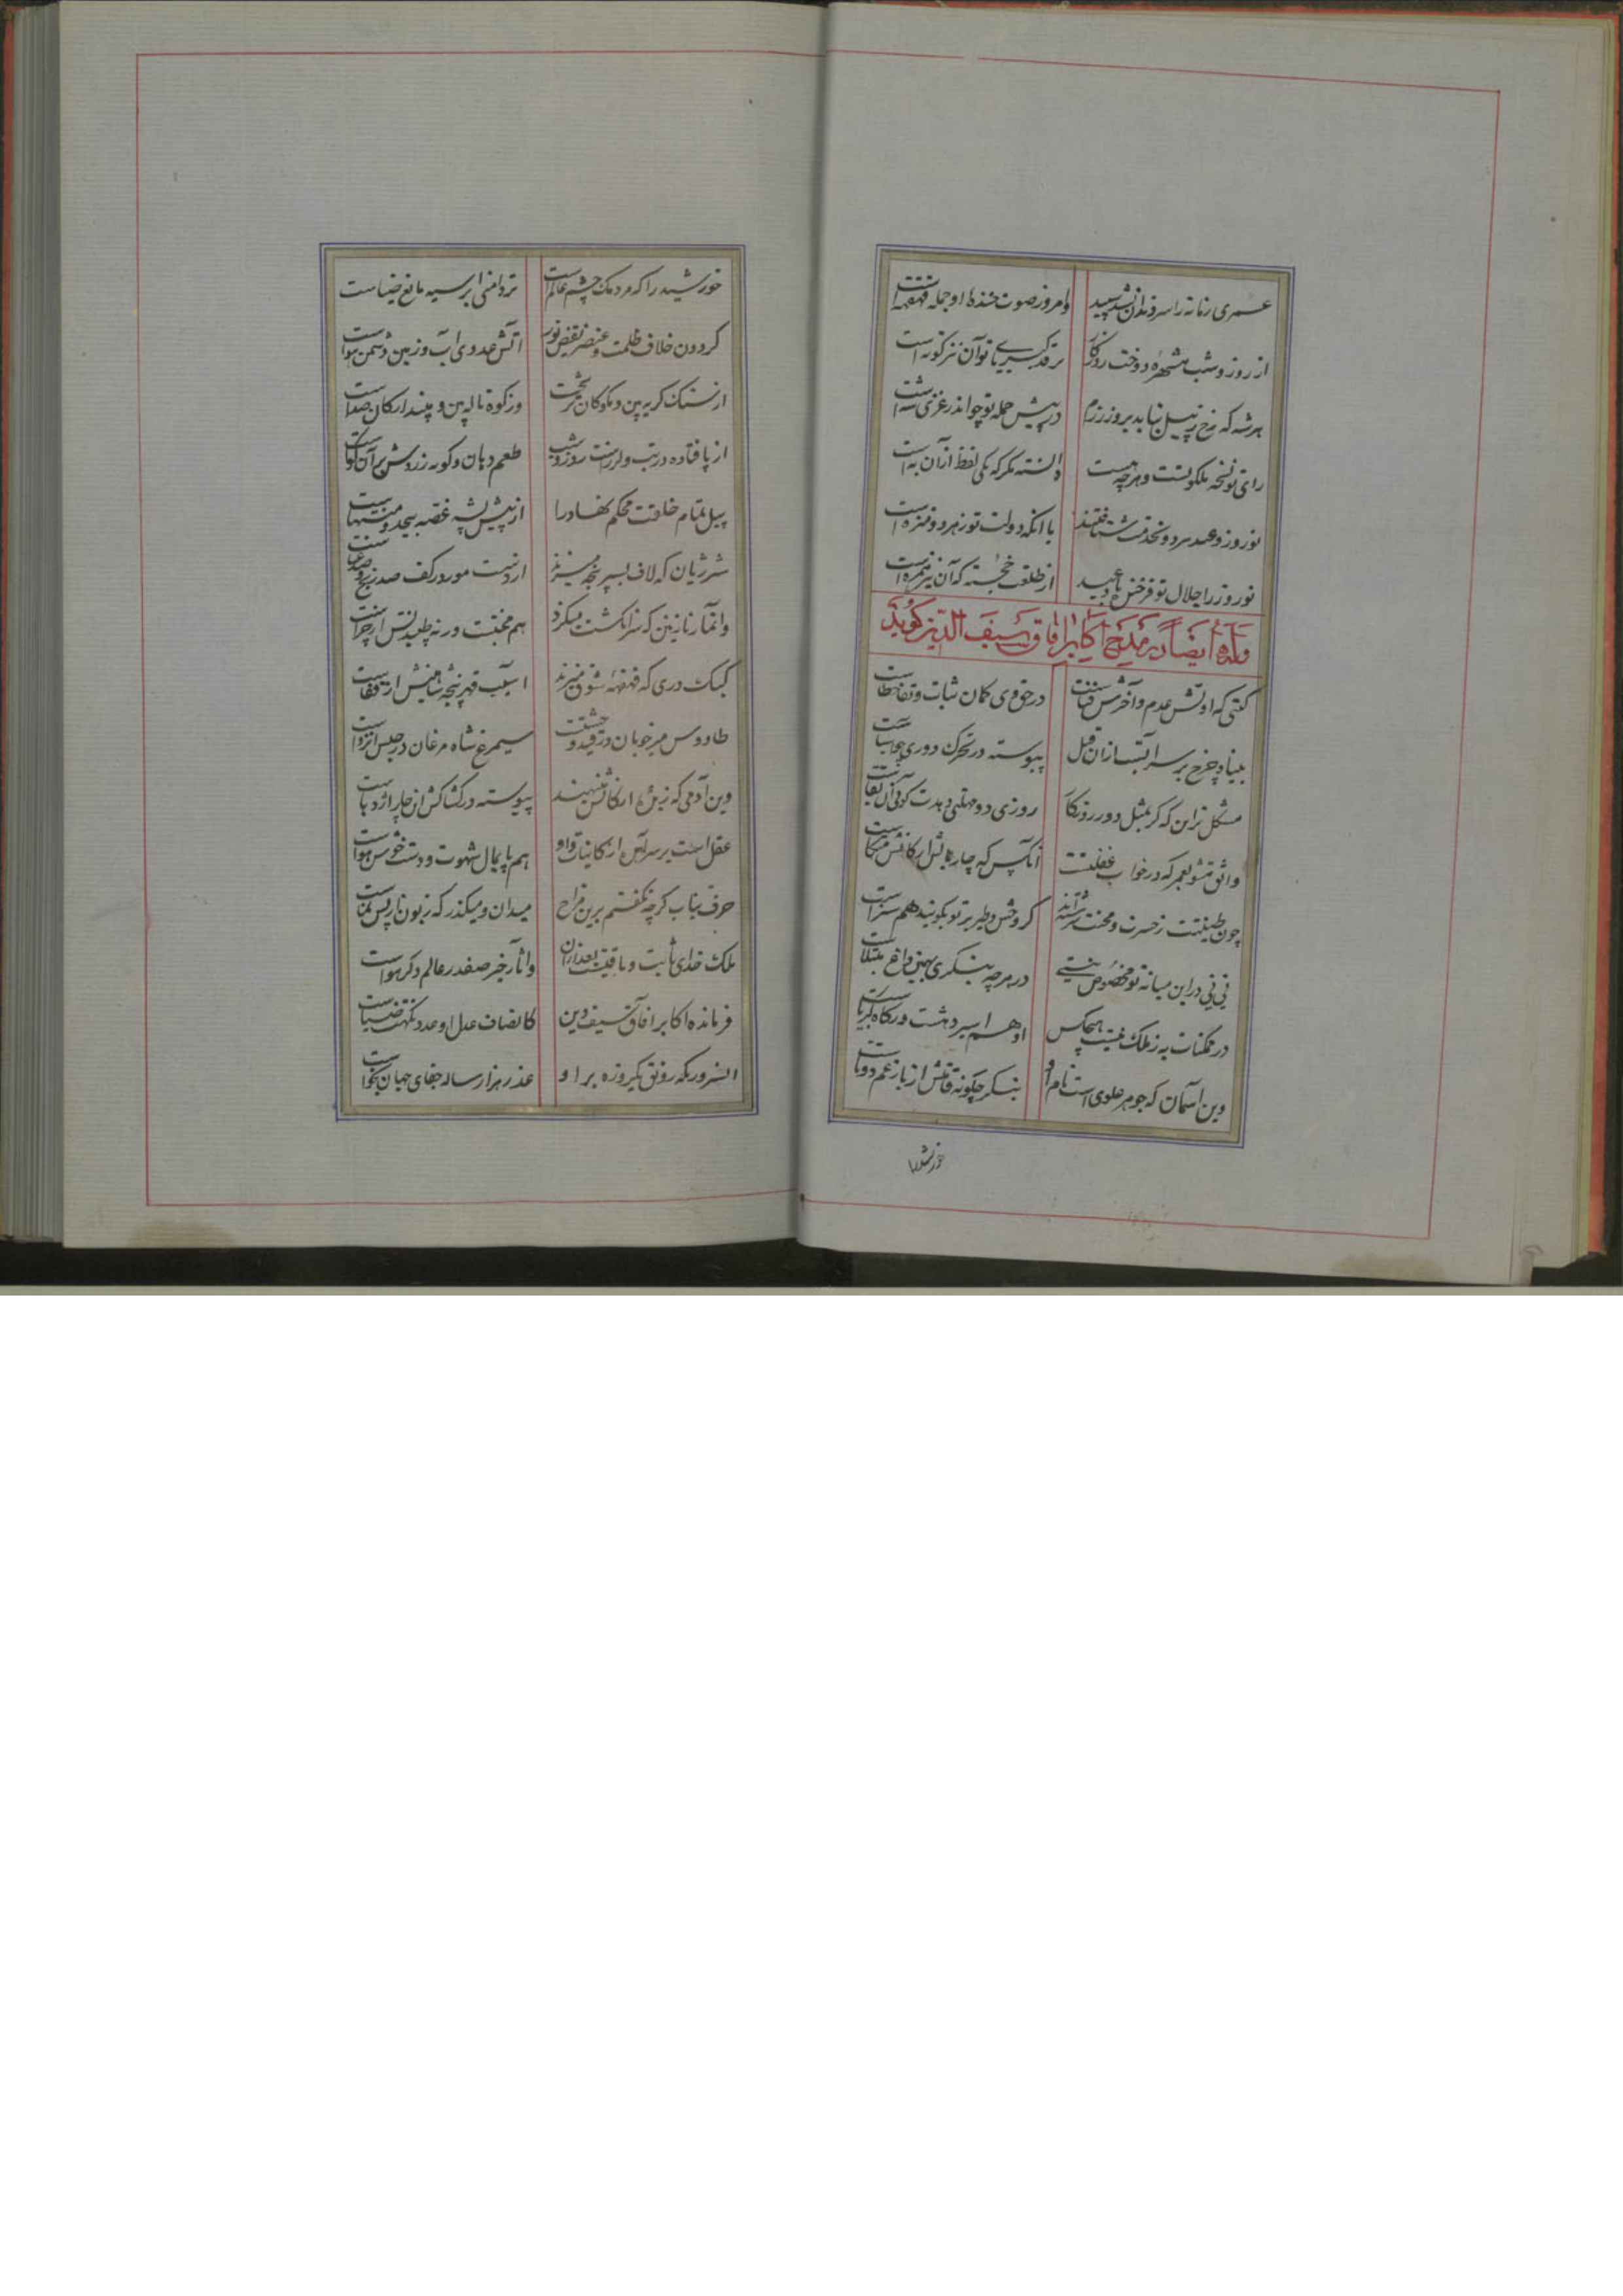 عمری زمانه را سر و دندان نشد سپید وامروز صوت خنده او جمله قهقهه است
از روز و شب مشهره دوخت روزگار بر قد کبریای تو آن نیز کوته است
هر شه که رخ ز پیل نتابد بروز رزم در پیش حمله تو چو اندر عری شه است
رای تو نسخه ملکوتست و هرچه هست دانسته مکر که یکی لفظ ازان به است
نوروز و عید هر دو بخدمت شتافتند با آنکه دولت تو ز هر دو منزه است
نوروز را جلال تو فرخنده باد و عید از طلعت خجسته که آن نیز است
وله ایضا در مدح اکابر آفاق سیف الدین کوید
کیتی که اولش عدم و آخرش فناست در حق وی کمان ثبات و بقا خطاست
بنیاد چرخ بر سر آبست ازان قبل پیوسته در تحرک دوری چو آسیاست
مشکل تر این که کر بمثل دور روزکار روزی دو مهلتی دهدت کوئی آن بقاست
واثق مشو بعمر که در خواب غفلتست آنکس که چار بالش ارکانش متکاست
چون طینتت ز حسرت و محنت سرشته‌اند کر وحش و طیر بر تو بکویند هم سزاست
نی نی درین میانه تو مخصوص نیستی در هرچه بنکری بهمین داغ مبتلاست
در ممکنات به ز ملک نیست هیچکس او هم اسیر دهشت درکاه کبریاست
وین آسمان که جوهر علوی است نام او بنکر چکونه قامتش از بار غم دوتاست
خورشید را
خورشید را که مردمک چشم عالم است تر دامنی ابر سیه مانع ضیاست
کردون خلاف ظلمت و عنصر نقیض نور آتش عدوی آب و زمین دشمن هواست
از سنک کریه بین و مکو کان ترشحست وز کوه ناله بین و مپندار کان صداست
از پا فتاده در تب و لرزست روز و شب طعم دهان و کونه زردش بر آن کواست
پیل تمام خلقت محکم نهاد را از نیش پشه غصه بیحد و منتهاست
شیر ژیان که لاف بسر پنجه میزند از دست مور در کف صد رنج و صد عناست
وآنمار نازنین که سر انکشت میکزد هم محنتست ورنه چلیدنش از چراست
کبک دری که قهقهه شوق میزند آسیب قهر پنجه شاهینش از قفاست
طاووس میر خوبان در قید وحشتست سیمرغ شاه مرغان در حبس انزواست
وین آدمی که زبده ارکانش مینهند پیوسته در کشاکش از چار اژدهاست
عقل است بر سر آمده از کاینات و او هم پایمال شهوت و دست خوش هواست
حرف بتاب کرچه نکفتم برین مزاح میدان و میکذر که زبونا ز پس نماست
ملک خدای ثابت و باقیست بعد ازان وآثار خیر صفدر عالم دکر هواست
فرمانده اکابر آفاق سیف دین کانصاف عدل او عدد
آنسرور که رونق یکروزه بر او عذر هزار ساله جفای جهان بخواست